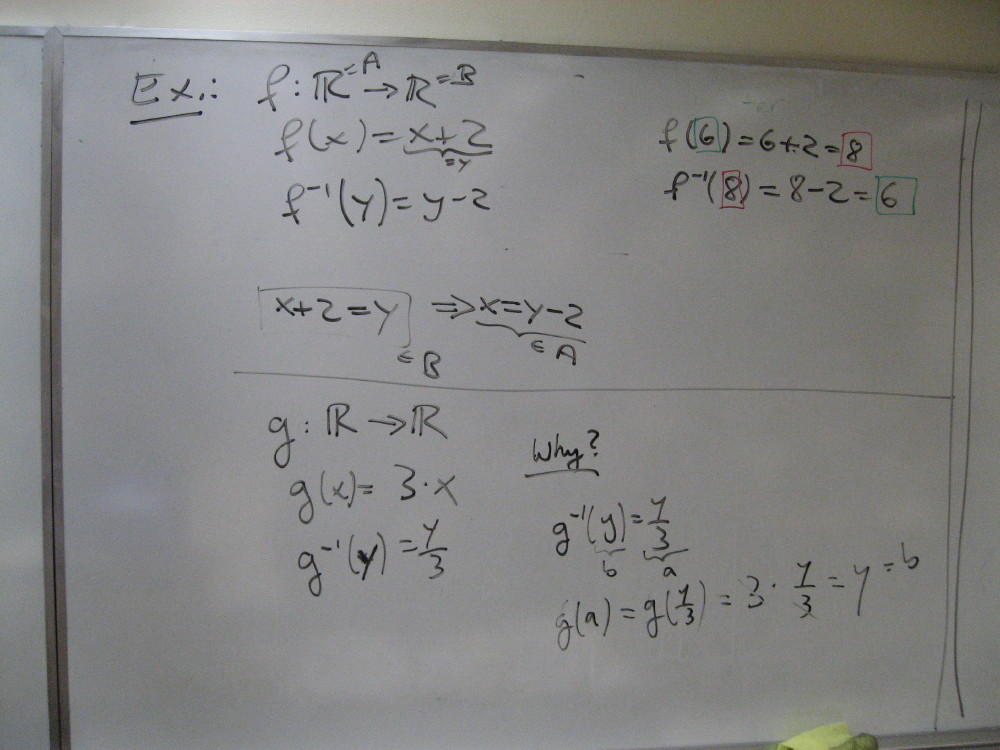 Ex.: f: ℝ=A → ℝ=B
f(x) = x+2
=y
f⁻¹(y) = y-2
f(6) = 6+2 = 8
f⁻¹(8) = 8-2 = 6
x+2 = y ⇒ x = y-2
∈ B ∈ A
g: ℝ → ℝ
g(x) = 3·x
g⁻¹(y) = y/3
Why?
g⁻¹(y) = y/3
b a
g(a) = g(y/3) = 3 · y/3 = y = b